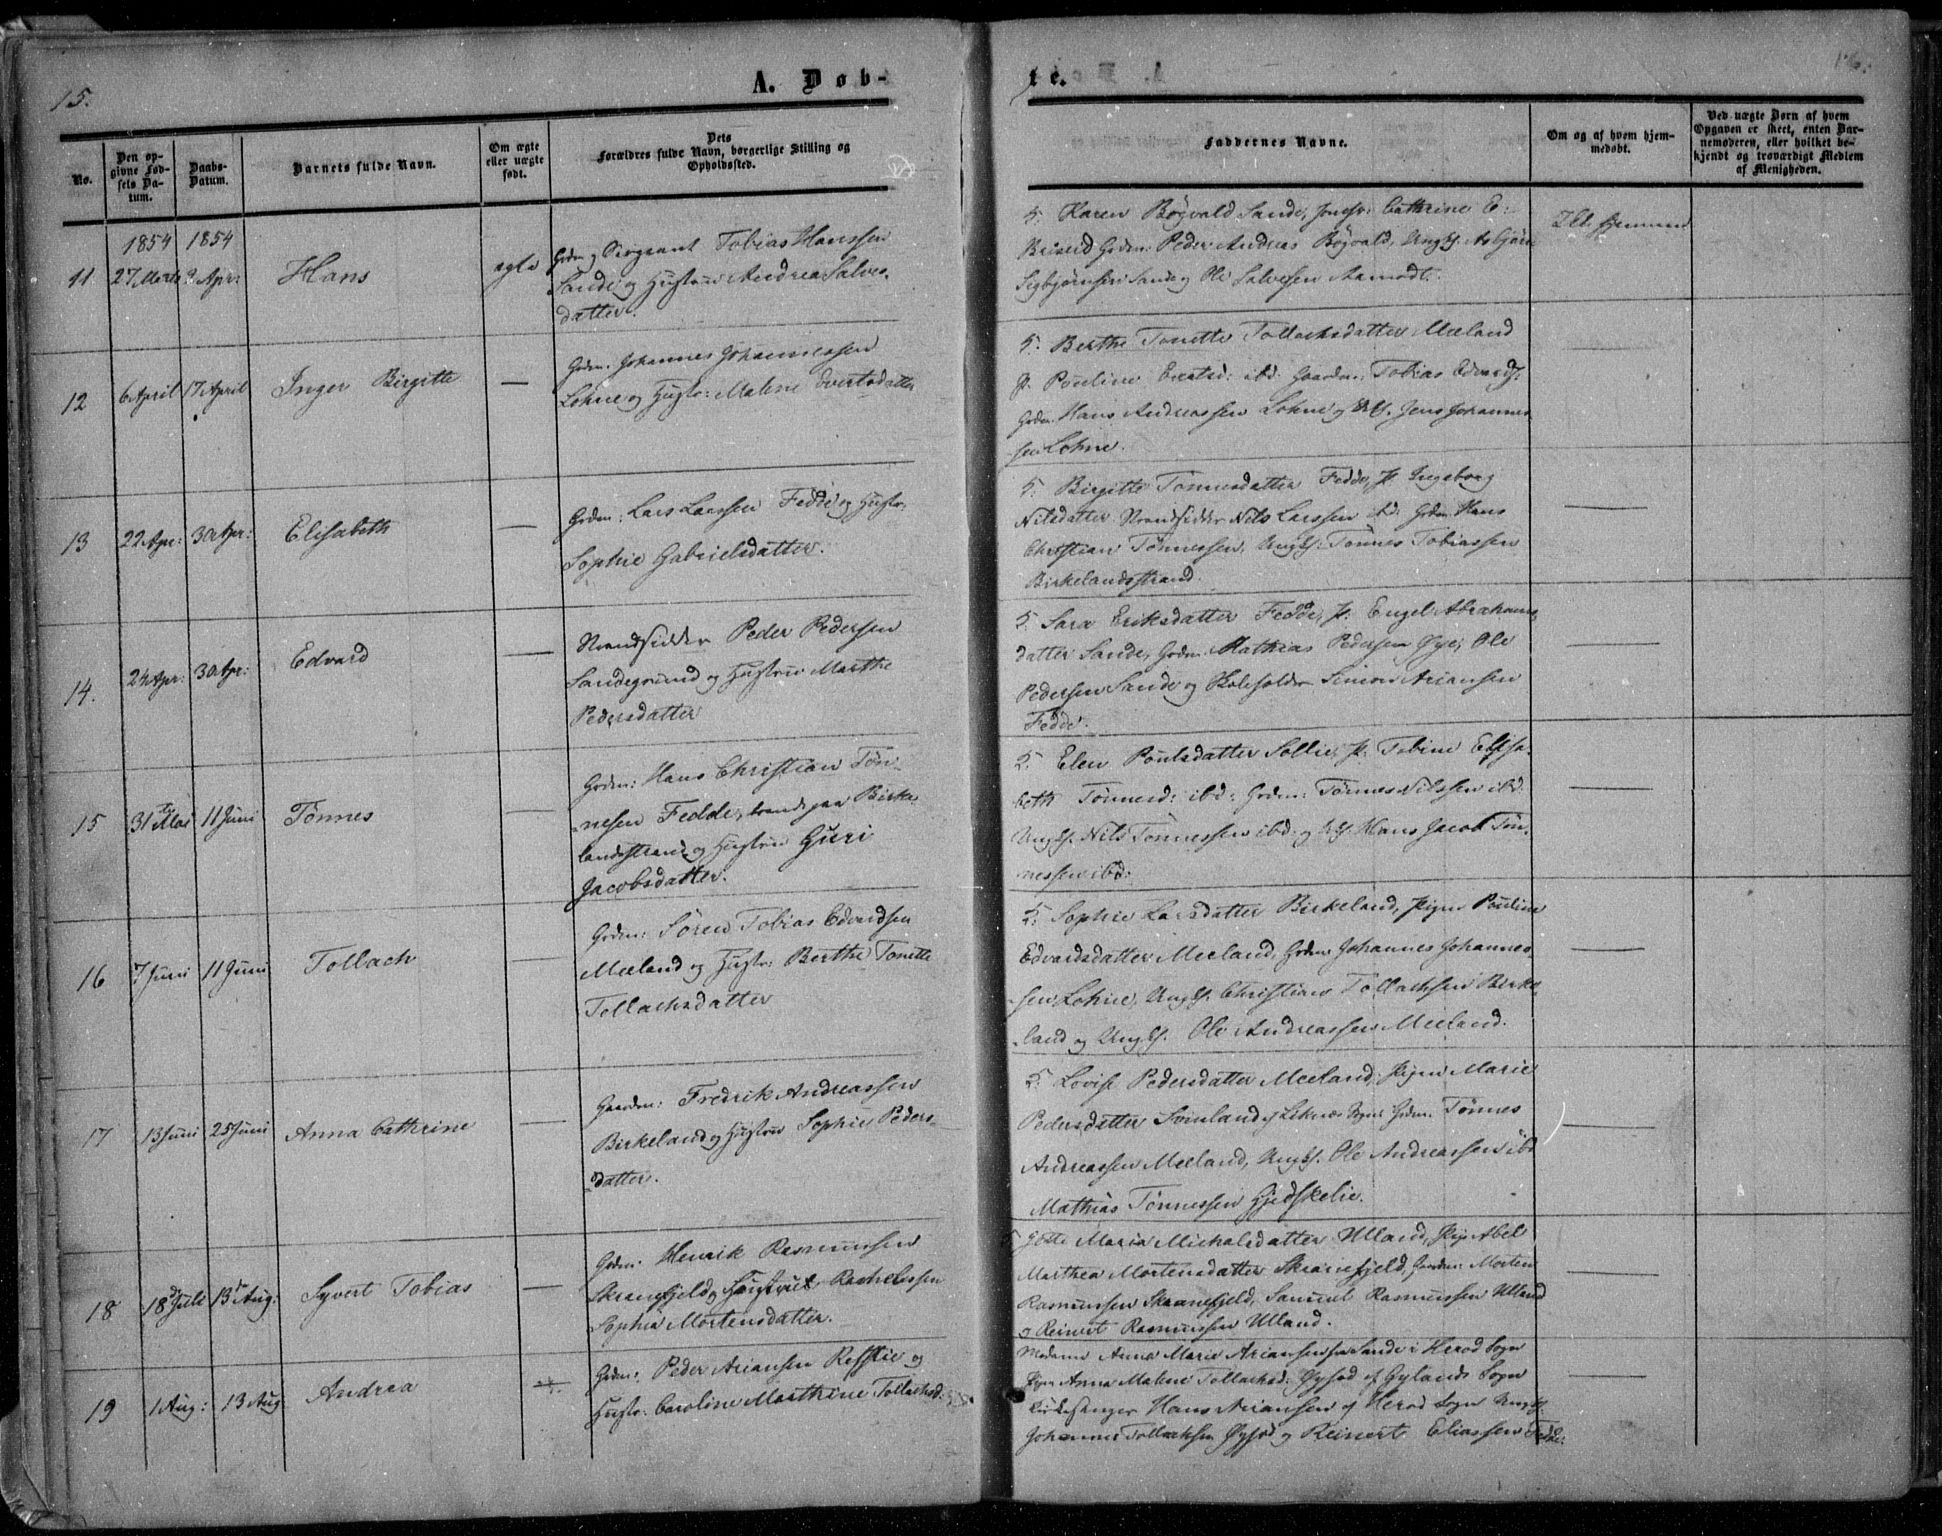 15.
A. Døb-
te.
16.
No.
Den op-
givne Fød-
sels Da-
tum.
Daabs-
Datum.
Barnets fulde Navn.
Om ægte
eller uægte
født.
Dets
Forældres fulde Navn, borgerlige Stilling og
Opholdssted.
Faddernes Navne.
Om og af hvem hjem-
medøbt.
Ved uægte Børn af hvem
Opgaven er skeet, enten Bar-
nemoderen, eller hvilket be-
kjendt og troværdigt Medlem
af Menigheden.
1854 1854
11 27 Marts 9 Apr: Hans ægte
Grdm. og Sergeant Tobias Hanssen
Sande og Hustrue Andrea Salves-
datter.
5. Karen Bøgvald Sande, Jomfr: Cathrine E:
Briseid Grdm: Peder Andreas Bøgvald, Ungk. Asbjørn
Sigbjørnsen Sande og Ole Salvesen Aamodt.
12 6 April 17 April Inger Birgitte —
Grdm. Johannes Johannessen
Lohne og Hustr: Malene Evertsdatter
5. Berthe Tonette Tollachsdatter Meeland
P. Pouline ibd: Gaardm: Tobias Edvards:
Grdm. Hans Andreassen Lohne og Jens Johannes-
sen Lohne.
13 22 Apr: 30 Apr: Elisabeth —
Grdm: Lars Larssen Fedde og Hustr.
Sophie Gabrielsdatter.
5. Birgitte Tønnesdatter Fedde, P. Ingeborg
Nilsdatter Strandsidder Nils Larssen ibd: Grdm Hans
Christian Tønnessen, Ungk. Tønnes Tobiassen
Birkelandsstrand.
14. 24 Apr: 30 Apr: Edvard —
Strandsidder Peder Pedersen
Sandegrund og Hustrue Marthe
Pedersdatter
5. Sara Eriksdatter Fedde, P. Engel Abrahams-
datter Sande, Grdm. Mathias Pedersen Øye, Ole
Pedersen Sande og Skoleholder Simon Ariansen
Fedde.
15 31te Mai 11 Juni Tønnes —
Grdm: Hans Christian Tøn-
nesen Fedde, boende paa Birke-
landsstrand og Hustrue Guri
Jacobsdatter.
5. Elen Poulsdatter Sollie, P. Tobine Elisa-
beth Tønnesd: ibd: Grdm: Tønnes Nilssen ibd.
Ungk. Nils Tønnessen ibd: og Hans Jacob Tøn-
nessen ibd:
16 7 Juni 11 Juni Tollach —
Grdm: Søren Tobias Edvardsen
Meeland og Hustr: Berthe Tonette
Tollachsdatter
5. Sophie Larsdatter Birkeland, Pigen Pouline
Edvardsdatter Meeland, Grdm. Johannes Johannes-
sen Lohne, Ungk. Christian Tollachsen Birke-
land og Ungk. Ole Andreassen Meeland.
17 13 Juni 25 Juni Anna Cathrine —
Gaardm: Fredrik Andreassen
Birkeland og Hustrue Sophie Peders-
datter.
5. Lovise Pedersdatter Meeland, Pigen Marie
Pedersdatter af Sogn: Grdm. Tønnes
Andreassen Meeland, Ungk. Ole Andreassen ibd
Mathias Tønnessen Gjedskelie.
18 18de Juli 13de Aug: Syvert Tobias —
Grdm: Henrik Rasmussen
Skranefjeld og Rachel
Sophia Mortensdatter.
Maria Michalsdatter Ulland, Pige Abel
Marthea Mortensdatter Skranefjeld, Gaardm: Morten
Rasmussen Skranefjeld, Samuel Rasmussen Ulland
og Reinert Rasmussen Ulland.
19 1 Aug: 13 Aug Andrea
Grdm: Peder Ariansen Refstie og
Hustr: Caroline Marthine Tollachsd:
Madame Anna Marie Ariansen Sande i Herod Sogn
Pigen Anna Malene Tollachsd: Øysød af Gylands Sogn
Kirkesanger Hans Ariansen af Herod Sogn Ungk.
Johannes Tollachsen Øysød og Reinert Eliassen Fedde.